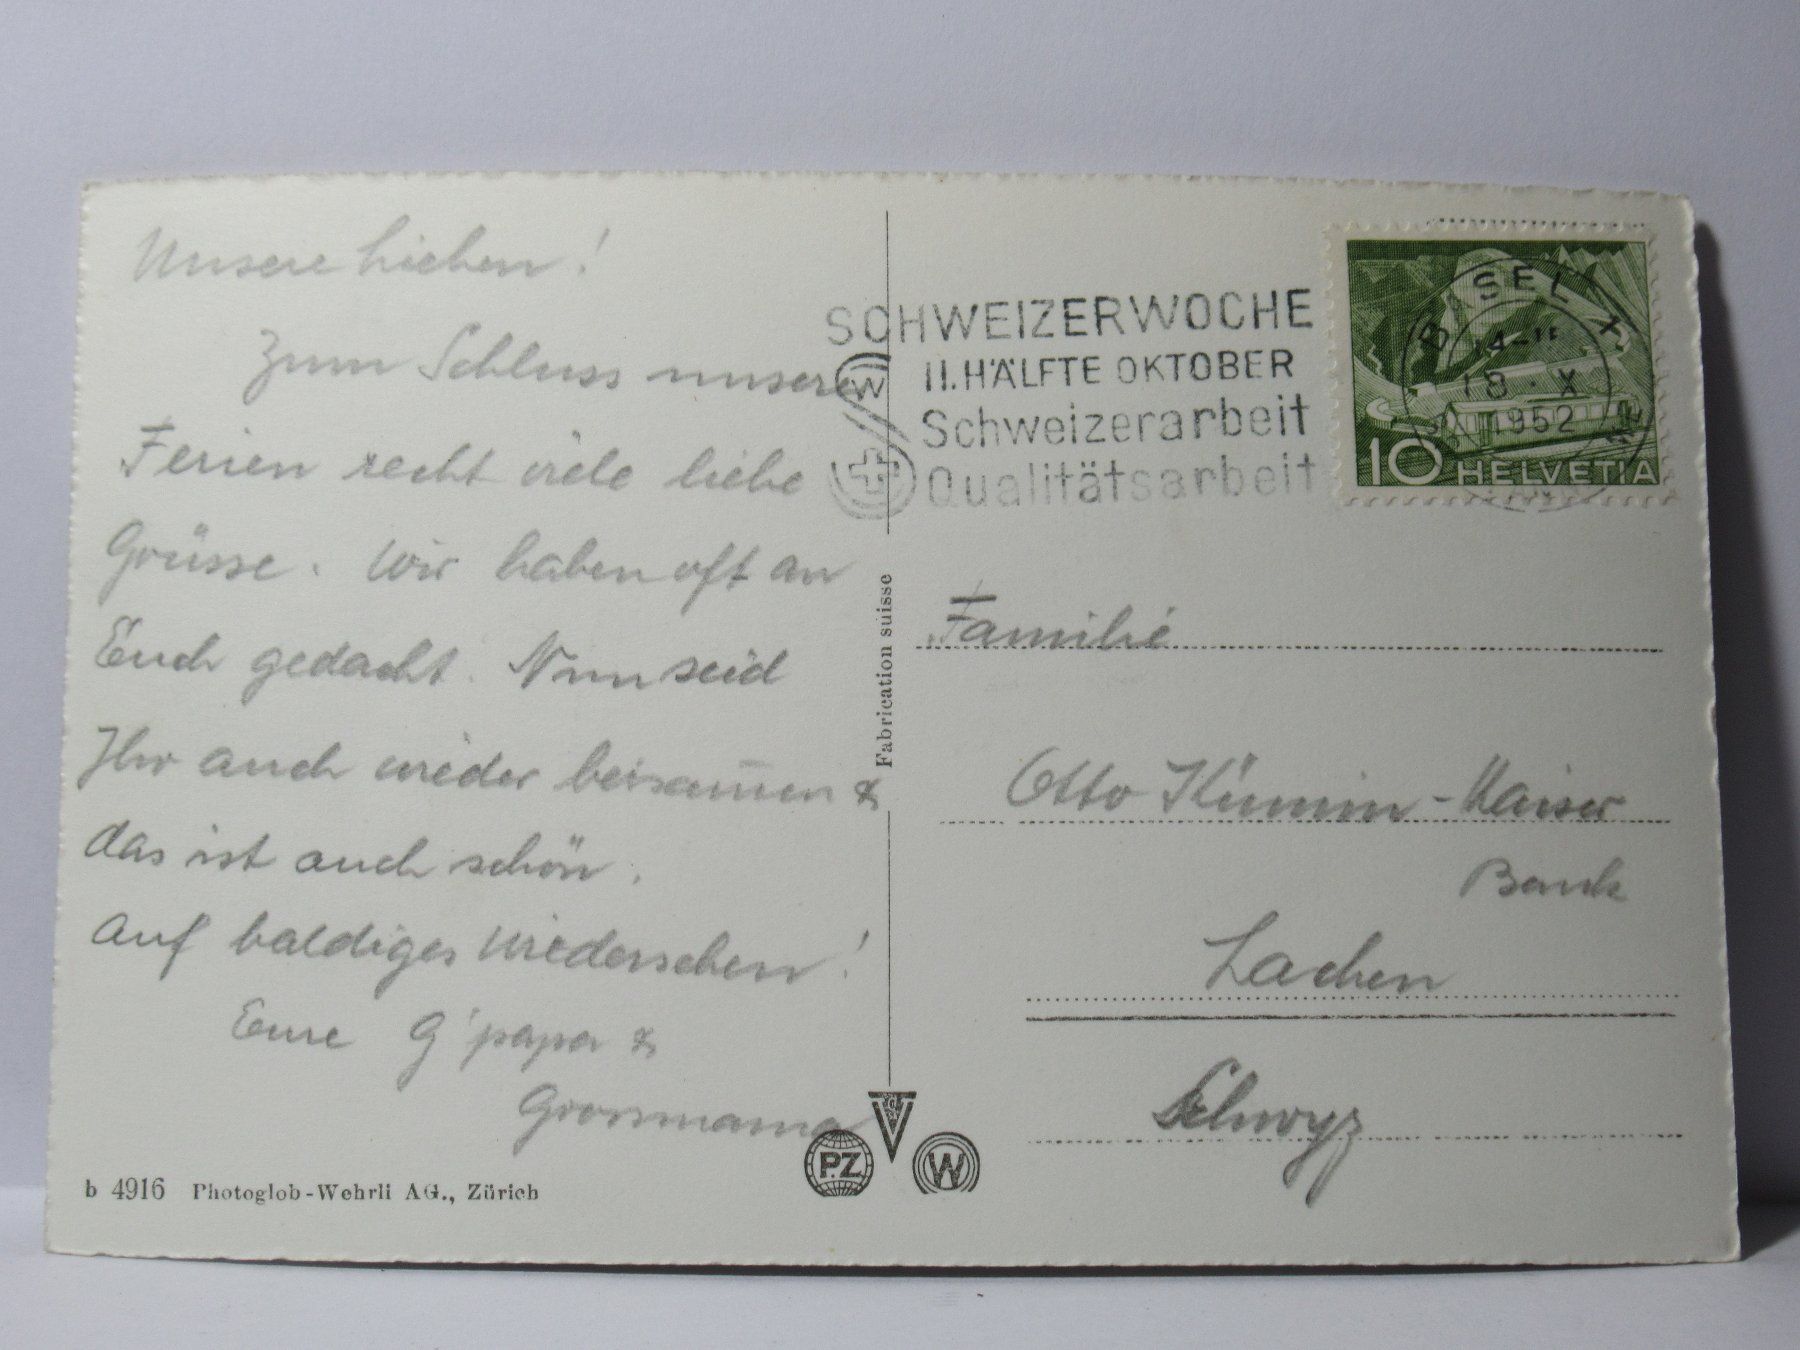 Unsere Lieben!
Zum Schluss unserer
Ferien recht viele liebe
Grüsse. Wir haben oft an
Euch gedacht. Nun seid
Ihr auch wieder beisam̅en &
das ist auch schön.
Auf baldiges Wiedersehen!
Eure G'papa &
Grossmama
b 4916 Photoglob-Wehrli AG., Zürich
Fabrication suisse
PZ
W
SCHWEIZERWOCHE
II. HÄLFTE OKTOBER
Schweizerarbeit
Qualitätsarbeit
W
BASEL 1
18.X
1952
10 HELVETIA
Familie
Otto Kümin-Kaiser
Bank
Lachen
Schwyz